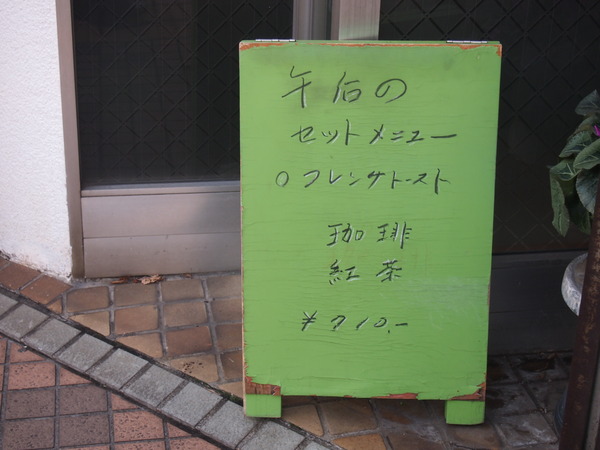 午后の
セットメニュー
○フレンチトースト
珈琲
紅茶
¥710.-